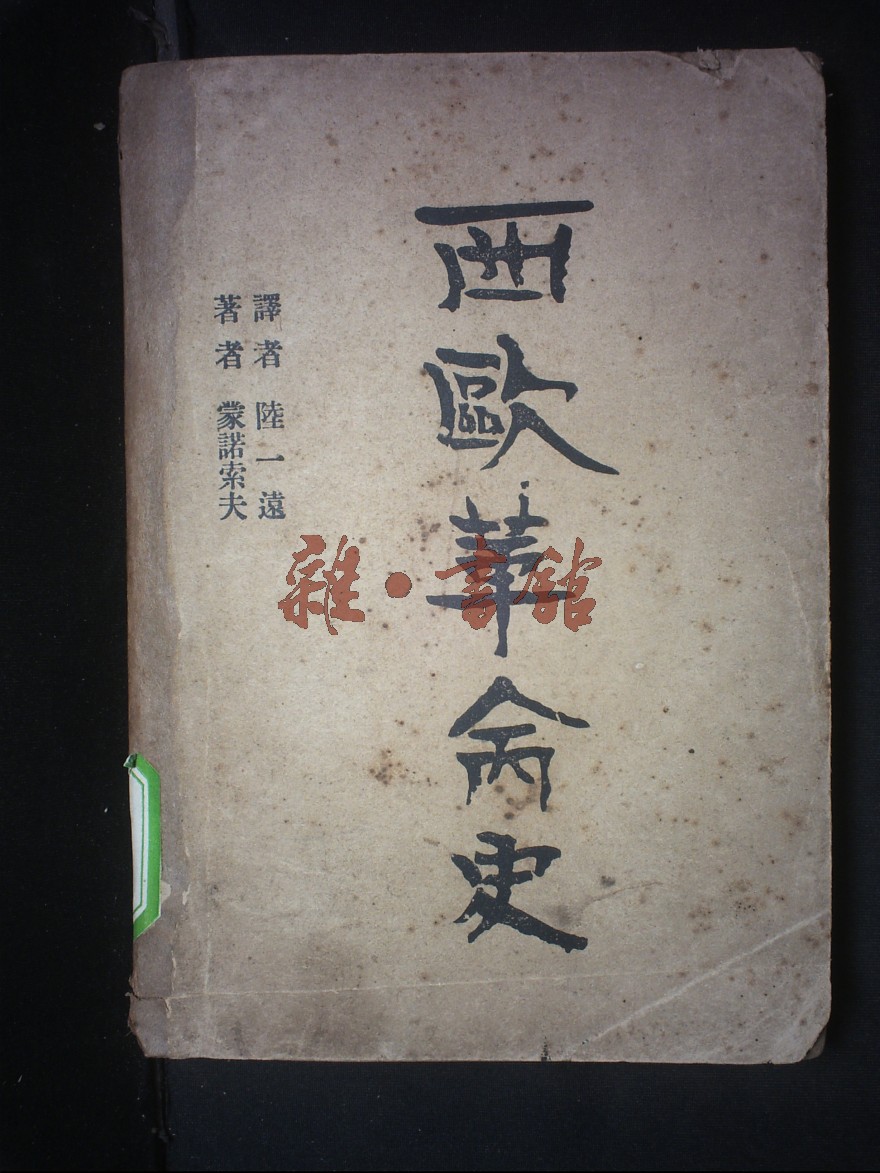 西歐革命史
譯者 陸一遠
著者 蒙諾索夫
雜·書館